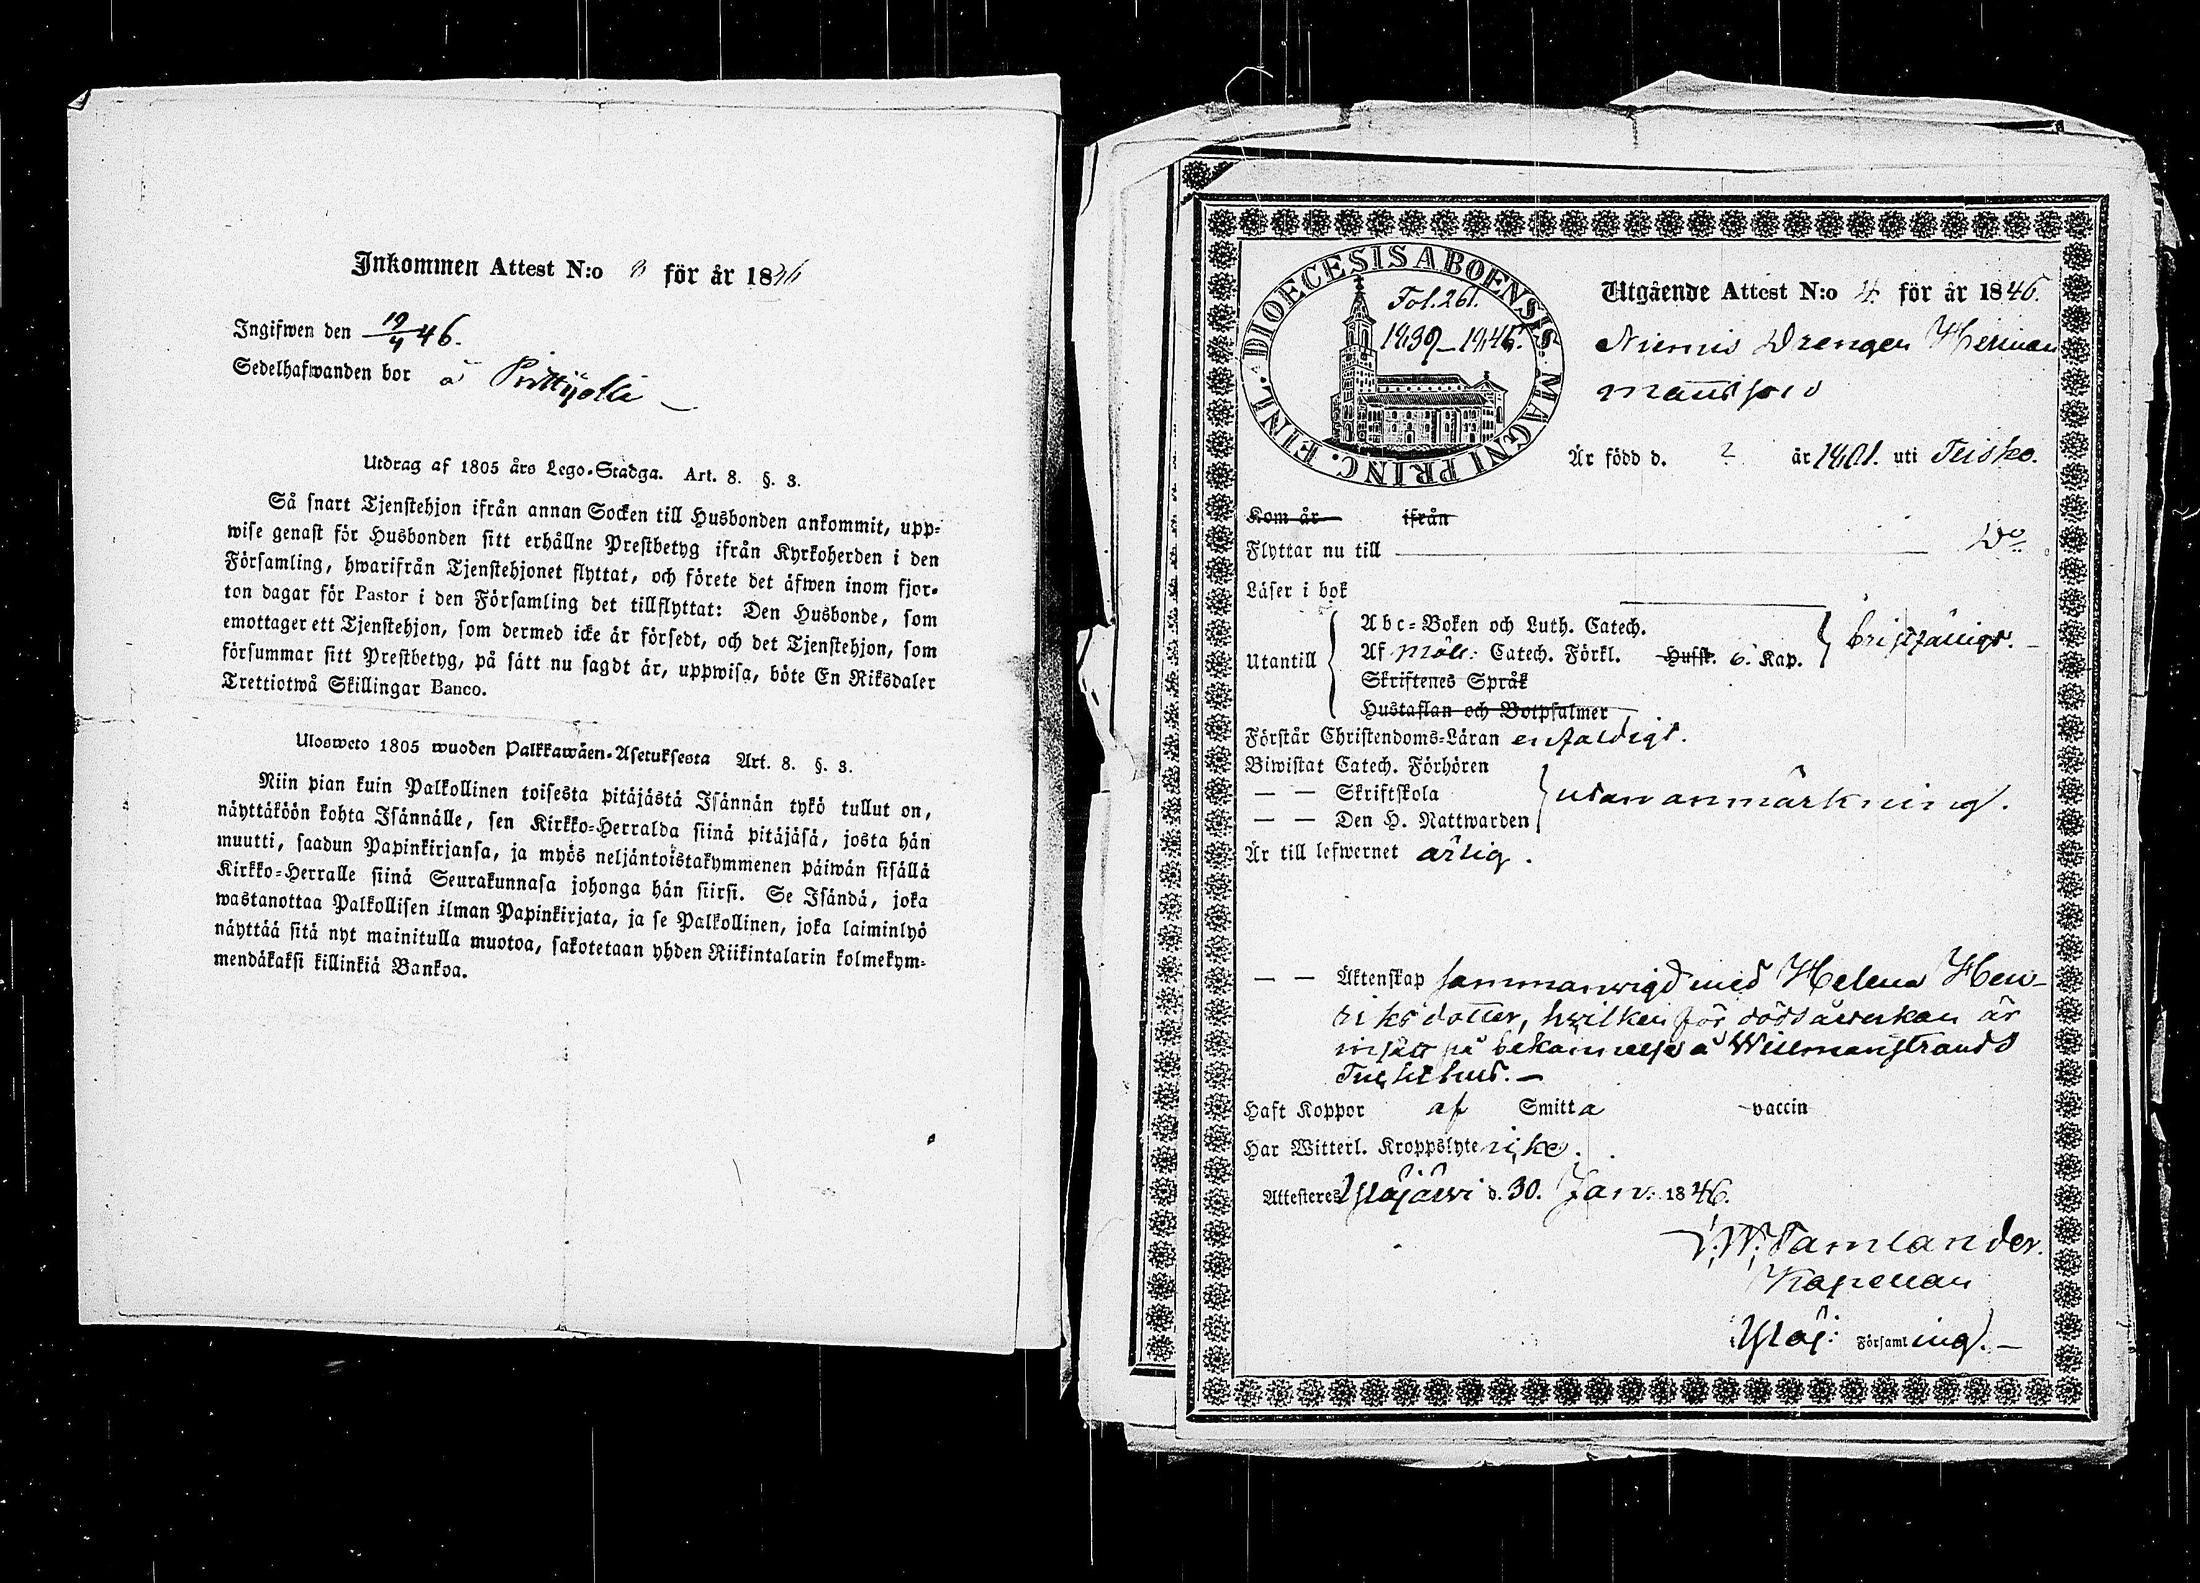 Inkommen Attest N:o 8 för år 1846
Ingifwen den 19/4 46.
Sedelhafwanden bor å
Utdrag af 1805 års Lego-Stadga. Art. 8. §. 3.
Så snart Tjenstehjon ifrån annan Socken till Husbonden ankommit, upp-
wise genast för Husbonden sitt erhållne Prestbetyg ifrån Kyrkoherden i den
Församling, hwarifrån Tjenstehjonet flyttat, och förete det äfwen inom fjor-
ton dagar för Pastor i den Församling det tillflyttat: Den Husbonde, som
emottager ett Tjenstehjon, som dermed icke är försedt, och det Tjenstehjon, som
försummar sitt Prestbetyg, på sätt nu sagdt är, uppwisa, böte En Riksdaler
Trettiotwå Skillingar Banco.
Ulosweto 1805 wuoden Palkkawäen-Asetuksesta Art. 8. §. 3.
Niin pian kuin Palkollinen toisesta pitäjästä Isännän tykö tullut on,
näyttäköön kohta Isännälle, sen Kirkko-Herralda siinä pitäjäsä, josta hän
muutti, saadun Papinkirjansa, ja myös neljäntoistakymmenen päiwän sisällä
Kirkko-Herralle siinä Seurakunnasa johonga hän siirsi. Se Isändä, joka
wastanottaa Palkollisen ilman Papinkirjata, ja se Palkollinen, joka laiminlyö
näyttää sitä nyt mainitulla muotoa, sakotetaan yhden Riikintalarin kolmekym-
mendäkaksi killinkiä Bankoa.
DIOECESIS ABOENSIS. MAGNI PRINC. FINL.
Fol. 261.
1839–1845.
Utgående Attest N:o 4. för år 1846.
Niemis Drengen Herman
Mattsson
Är född d. ? år 1801. uti Teisko.
Kom år ifrån
Flyttar nu till Do
Läser i bok
Utantill
Abc-Boken och Luth. Catech.
Af Möll: Catech. Förkl. Hufst. 6. Kap. bristfälligt.
Skriftenes Språk
Hustaflan och Botpsalmer
Förstår Christendoms-Läran enfaldigt.
Biwistat Catech. Förhören
— — Skriftskola utan anmärkning.
— — Den H. Nattwarden
Är till lefwernet ärlig.
— — Äktenskap sammanwigd med Helena Hen-
riksdotter, hwilken för dödsåwerkan är
insatt på bekännelse å Willmanstrands
Tukthus.
Haft Koppor af Smitta vaccin
Har Witterl. Kroppslyte icke.
Attesteres Ylöjärwi d. 30. Jan. 1846.
Tamlander.
Kapellan
Ylöj: Församling.